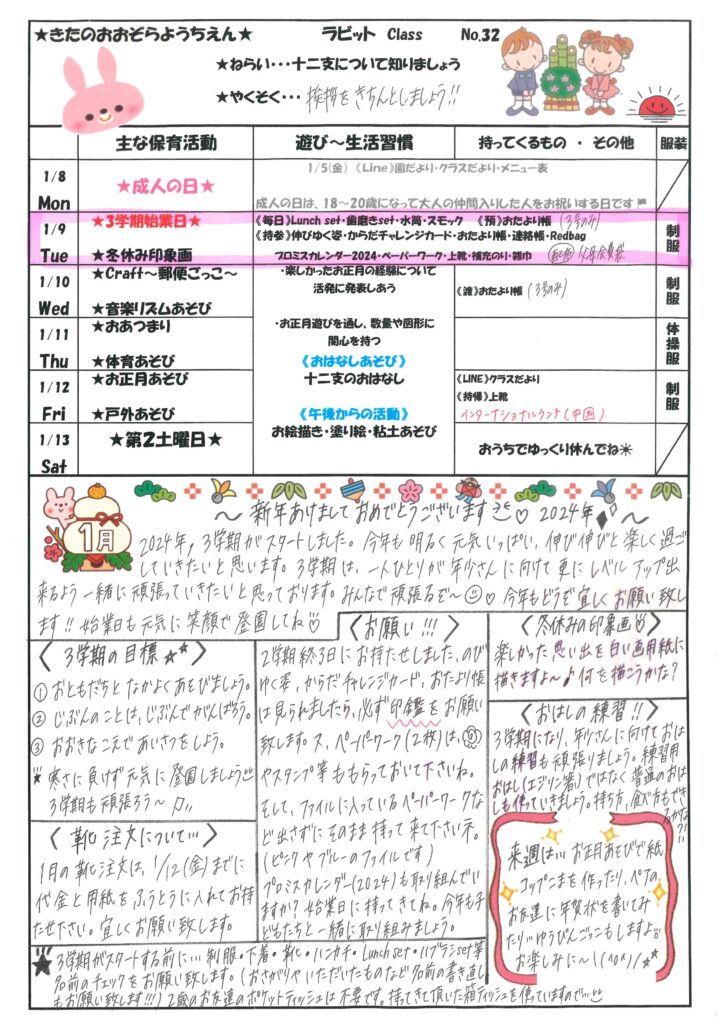 ★きたのおおぞらようちえん★ ラビット Class No.32
★ねらい･･･十二支について知りましょう
★やくそく･･･ 挨拶をきちんとしましょう!!
主な保育活動 遊び～生活習慣 持ってくるもの ・ その他 服装
1/8 Mon
★成人の日★
1/5(金) 《Line》園だより・クラスだより・メニュー表
成人の日は、18～20歳になって大人の仲間入りした人をお祝いする日です
1/9 Tue
★3学期始業日★
★冬休み印象画
《毎日》Lunch set・歯磨きset・水筒・スモック 《預》おたより帳 (3号のみ)
《持参》伸びゆく姿・からだチャレンジカード・おたより帳・連絡帳・Redbag
プロミスカレンダー2024・ペーパーワーク・上靴・補充のり・雑巾 (配布)父母会費袋
制服
1/10 Wed
★Craft～郵便ごっこ～
★音楽リズムあそび
・楽しかったお正月の経験について
活発に発表しあう
《渡》おたより帳 (3号のみ)
制服
1/11 Thu
★おあつまり
★体育あそび
・お正月遊びを通し、数量や図形に
関心を持つ
《おはなしあそび》
体操服
1/12 Fri
★お正月あそび
★戸外あそび
十二支のおはなし
《午後からの活動》
《LINE》クラスだより
《持帰》上靴
インターナショナルランチ(中国)
制服
1/13 Sat
★第2土曜日★
お絵描き・塗り絵・粘土あそび
おうちでゆっくり休んでね☀
1月
～ 新年あけましておめでとうございます♡ 2024年 ～
2024年, 3学期がスタートしました。今年も明るく元気いっぱい, 伸び伸びと楽しく過ご
していきたいと思います。3学期は、一人ひとりが年少さんに向けて更にレベルアップ出
来るよう一緒に頑張っていきたいと思っております。みんなで頑張るぞ～♡ 今年もどうぞ宜しくお願い致し
ます!! 始業日も元気に笑顔で登園してね♡
〈3学期の目標★★〉
① おともだちとなかよくあそびましょう。
② じぶんのことは、じぶんでがんばろう。
③ おおきなこえであいさつをしよう。
★ 寒さに負けず元気に登園しましょう
3学期も頑張ろう～!!
〈靴注文について…〉
1月の靴注文は, 1/12(金)までに
代金と用紙をふうとうに入れてお持
たせ下さい。宜しくお願い致します。
〈お願い!!!〉
2学期終了日にお持たせしました, のび
ゆく姿, からだチャレンジカード, おたより帳
は見られましたら, 必ず印鑑をお願い
致します。又、ペーパーワーク(2枚)は,
やスタンプ等ももらっておいて下さいね。
そして, ファイルに入っているペーパーワークな
ど出さずにそのまま持って来て下さいネ。
(ピンクやブルーのファイルです)
プロミスカレンダー(2024)も取り組んでい
ますか? 始業日に持ってきてね。今年も子
どもたちと一緒に取り組みましょう。
〈冬休みの印象画〉
楽しかった思い出を白い画用紙に
描きますよ～♪何を描こうかな?
〈おはしの練習!!〉
3学期になり, 年少さんに向けておは
しの練習も頑張りましょう。練習用
おはし(エジソン箸)ではなく普通のおは
しも使っていきましょう。持ち方, 食べ方もできるかな?!
来週は… お正月あそびで紙
コップこまを作ったり, ペアの
お友達に年賀状を書いてみ
たり…ゆうびんごっこもしますよ。
お楽しみに～\(^o^)/★★
★ 3学期がスタートする前に… 制服・下着・靴・ハンカチ・Lunch set・ハブラシset等
名前のチェックをお願い致します。(おさがりやいただいたものなど名前の書き直し
もお願い致します!!!) 2歳のお友達のポケットティッシュは不要です。持ってきて頂いた箱ティッシュを使っていますので…